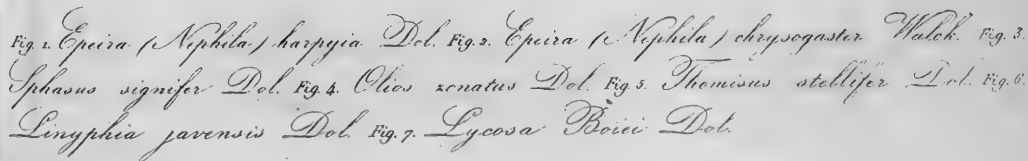 Fig. 1. Epeira (Nephila) harpyia Dol. Fig. 2. Epeira (Nephila) chrysogaster Walck. Fig. 3.
Sphasus signifer Dol. Fig. 4. Olios zonatus Dol. Fig. 5. Thomisus stellifer Dol. Fig. 6.
Linyphia javensis Dol. Fig. 7. Lycosa Boiei Dol.